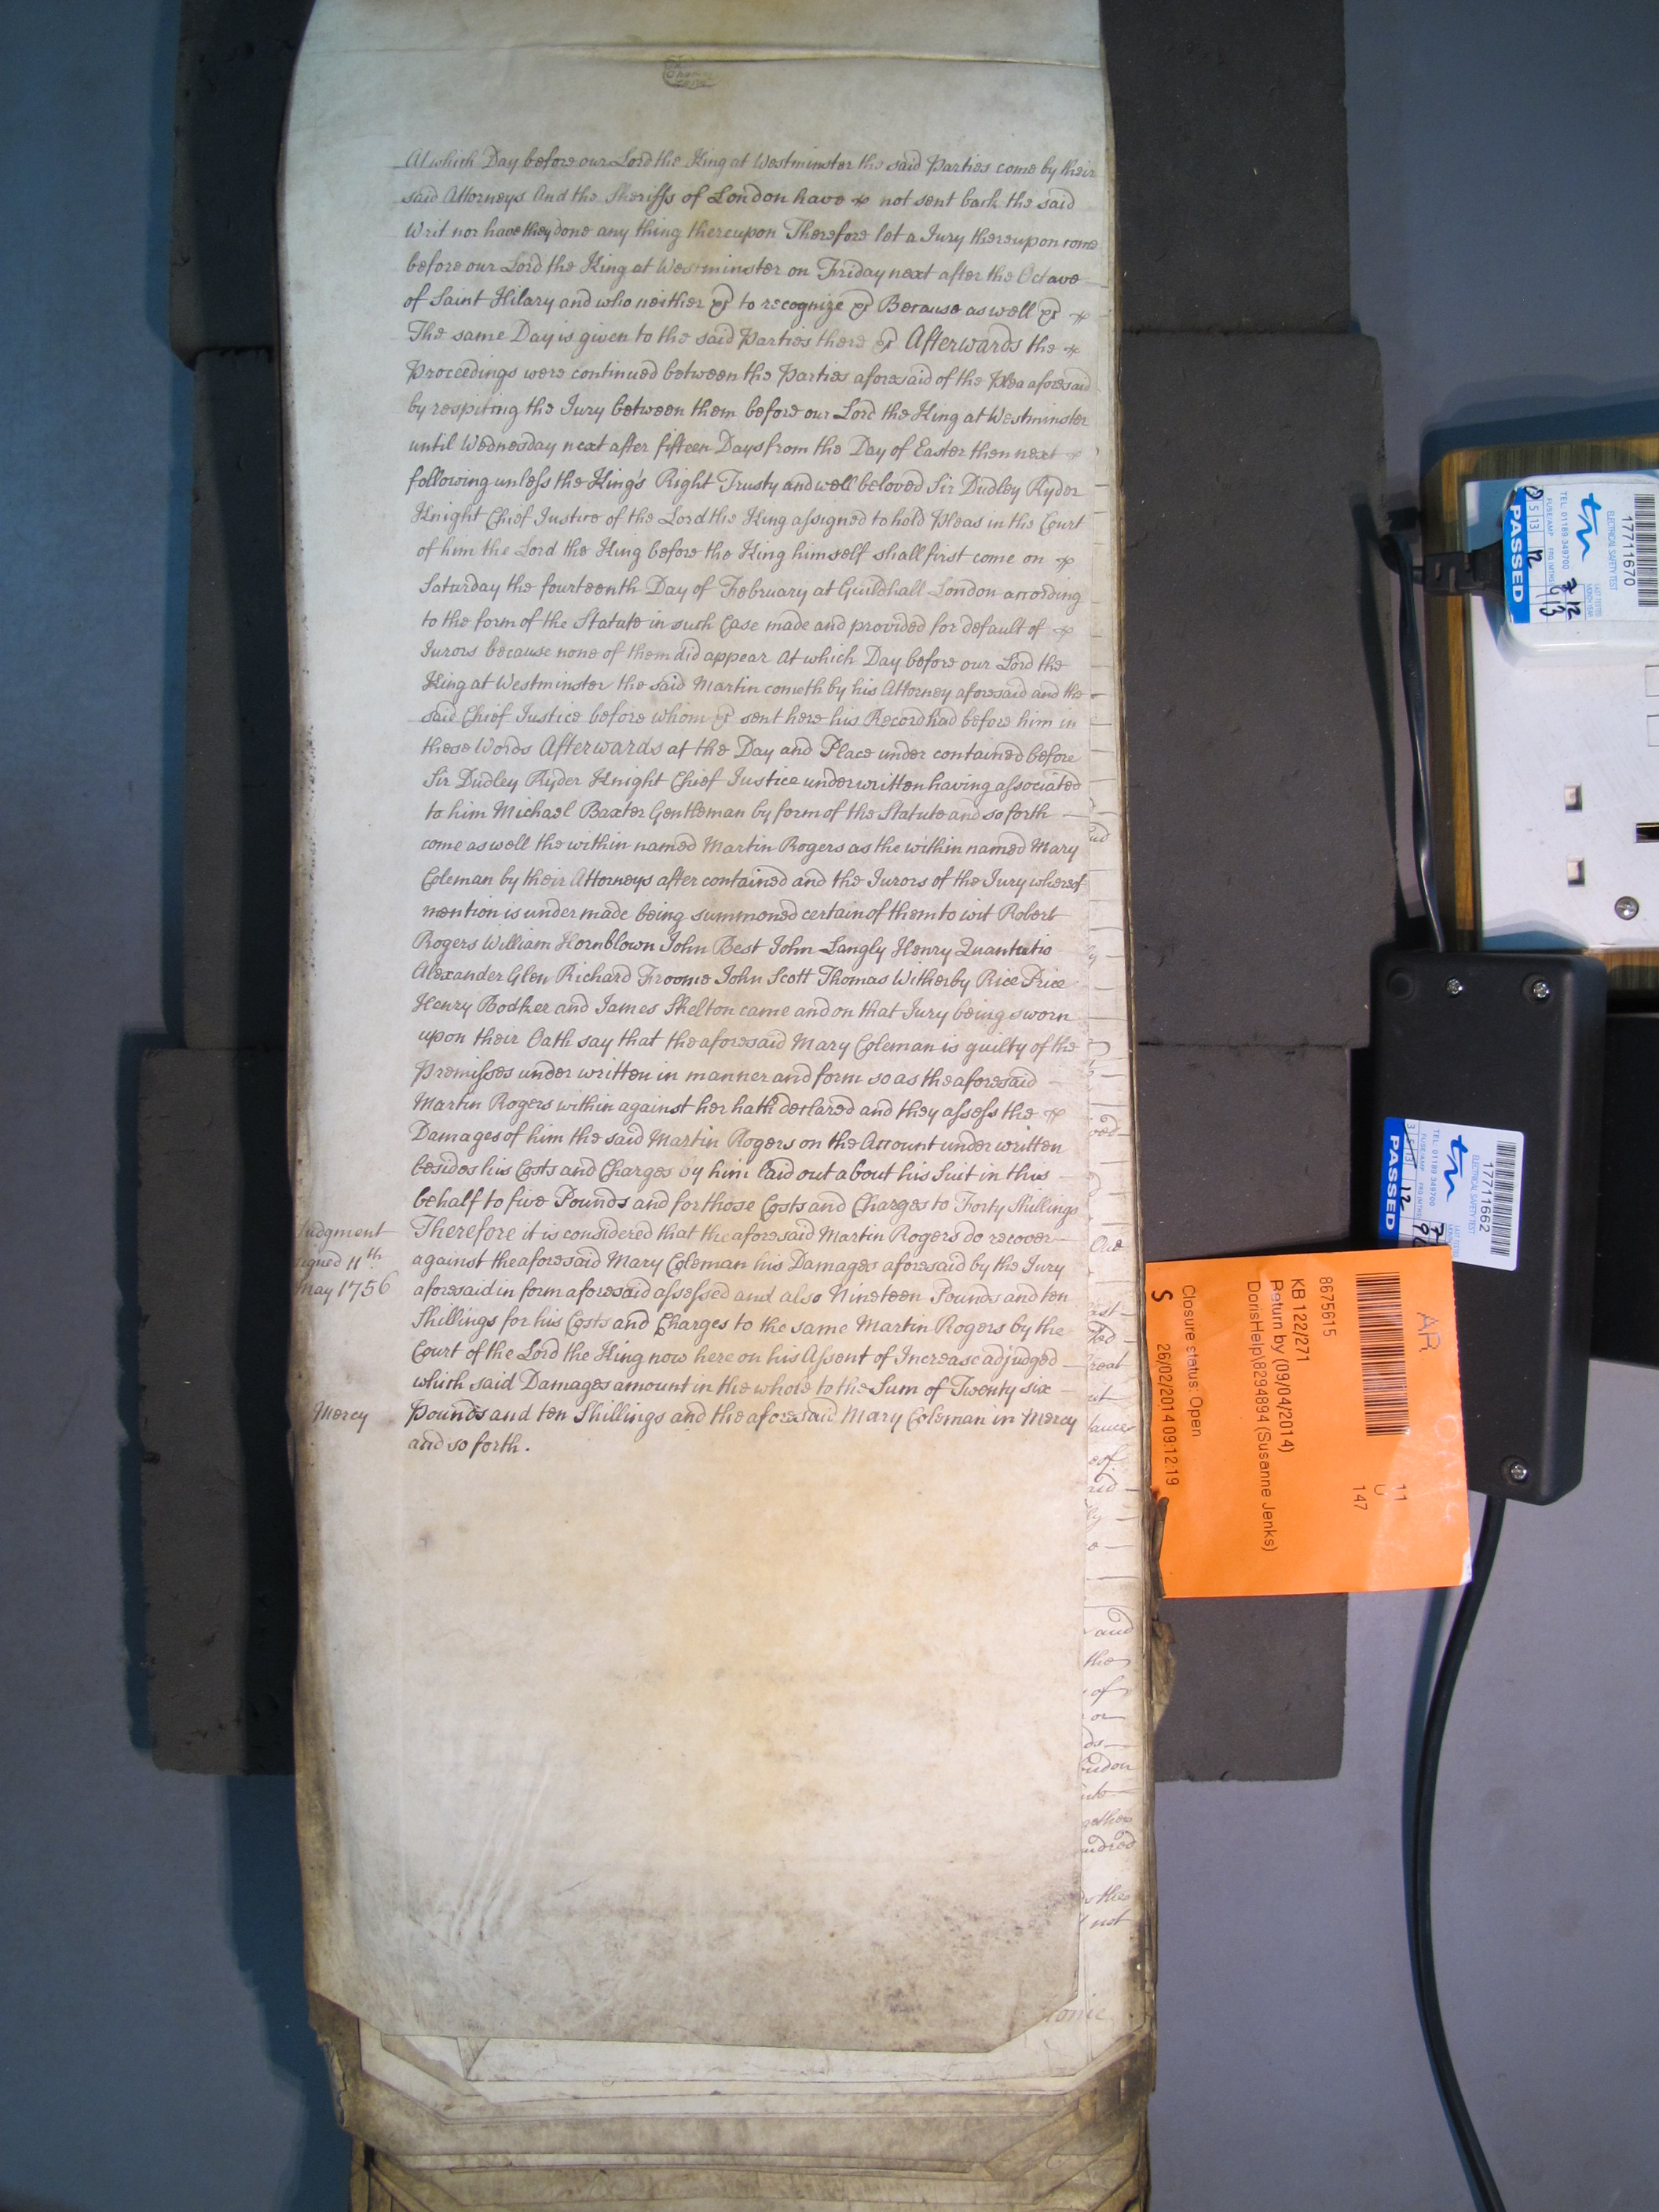 At which Day before our Lord the King at Westminster the said Parties come by their
said Attorneys And the Sheriffs of London have not sent back the said
Writ nor have they done any thing thereupon Therefore let a Jury thereupon come
before our Lord the King at Westminster on Friday next after the Octave
of Saint Hilary and who neither &c to recognize &c Because as well &c
The same Day is given to the said Parties there &c Afterwards the
Proceedings were continued between the Parties aforesaid of the Plea aforesaid
by respiting the Jury between them before our Lord the King at Westminster
until Wednesday next after fifteen Days from the Day of Easter then next
following unless the King's Right Trusty and well beloved Sir Dudley Ryder
Knight Chief Justice of the Lord the King assigned to hold Pleas in the Court
of him the Lord the King before the King himself shall first come on
Saturday the fourteenth Day of February at Guildhall London according
to the form of the Statute in such Case made and provided for default of
Jurors because none of them did appear At which Day before our Lord the
King at Westminster the said Martin cometh by his Attorney aforesaid and the
said Chief Justice before whom &c sent here his Record had before him in
these Words Afterwards at the Day and Place under contained before
Sir Dudley Ryder Knight Chief Justice underwritten having associated
to him Michael Baxter Gentleman by form of the Statute and so forth
come as well the within named Martin Rogers as the within named Mary
Coleman by their Attorneys after contained and the Jurors of the Jury whereof
mention is under made being summoned certain of them to wit Robert
Rogers William Hornblown John Best John Langly Henry
Alexander Glen Richard Froome John Scott Thomas Witherby Rice Price
Henry Bodker and James Skelton came and on that Jury being sworn
upon their Oath say that the aforesaid Mary Coleman is guilty of the
Premisses under written in manner and form so as the aforesaid
Martin Rogers within against her hath declared and they assess the
Damages of him the said Martin Rogers on the Account under written
besides his Costs and Charges by him laid out about his Suit in this
behalf to five Pounds and for those Costs and Charges to Forty Shillings
Judgment Therefore it is considered that the aforesaid Martin Rogers do recover
signed 11th against the aforesaid Mary Coleman his Damages aforesaid by the Jury
May 1756 aforesaid in form aforesaid assessed and also Nineteen Pounds and ten
Shillings for his Costs and Charges to the same Martin Rogers by the
Court of the Lord the King now here on his Assent of Increase adjudged
which said Damages amount in the whole to the Sum of Twenty six
Mercy Pounds and ten Shillings and the aforesaid Mary Coleman in Mercy
and so forth.
AR
8675615
KB 122/271
Return by (09/04/2014)
DorisHelp\8294894 (Susanne Jenks)
Closure status: Open
S 26/02/2014 09:12:19
11
U
147
17711670
ELECTRICAL SAFETY TEST
TEL. 01189 349700
PASSED
17711662
ELECTRICAL SAFETY TEST
TEL. 01189 349700
PASSED